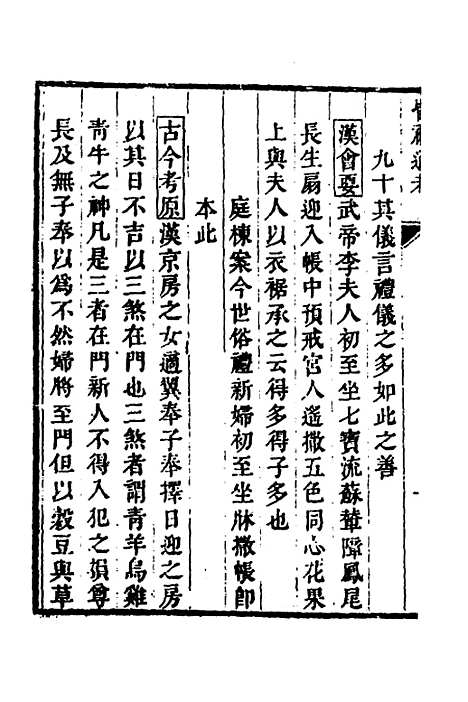 九十其儀言禮儀之多如此之善
漢會要武帝李夫人初至坐七寶流蘇輦障鳳尾
長生扇迎入帳中預戒宮人遙撒五色同心花果
上與夫人以衣裾承之云得多得子多也
庭棟案今世俗禮新婦初至坐牀撒帳卽
本此
古今考原漢京房之女適翼奉子奉擇日迎之房
以其日不吉以三煞在門也三煞者謂青羊烏雞
靑牛之神凡是三者在門新人不得入犯之損尊
長及無子奉以爲不然婦將至門但以穀豆與草